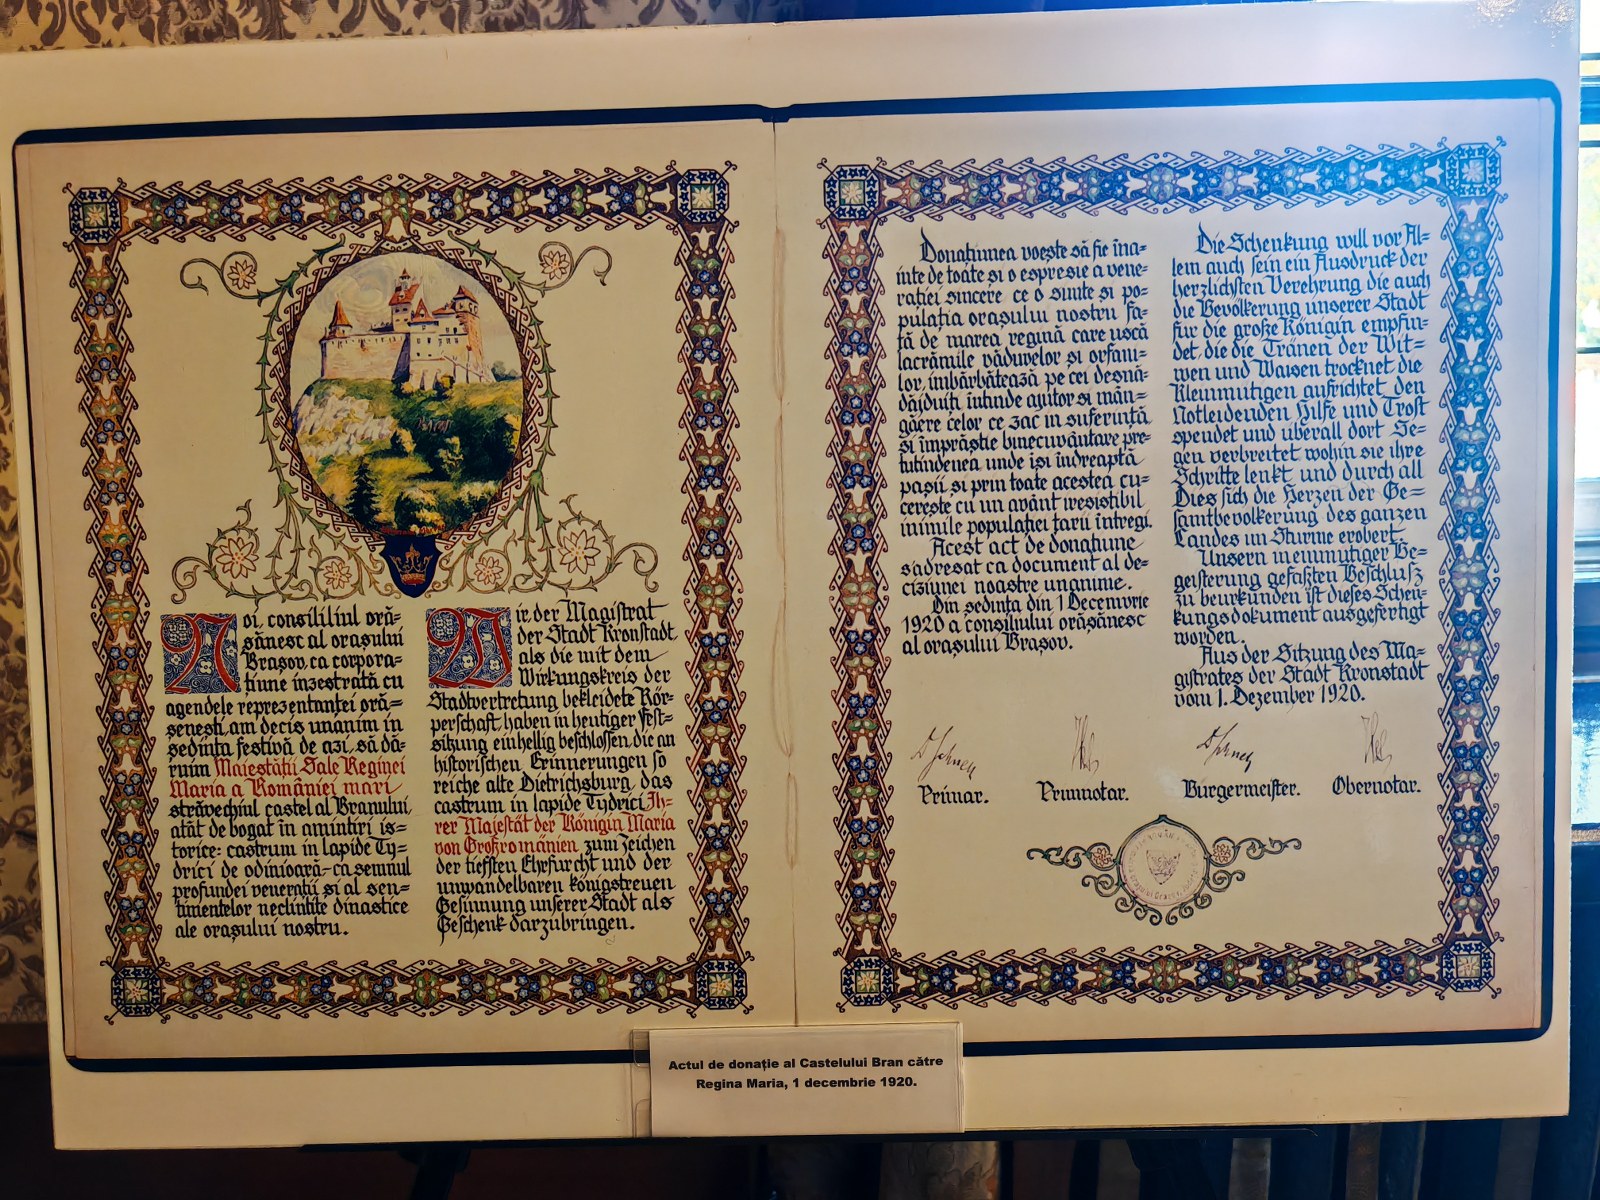 Noi, consililiul oră=
sănesc al orașului
Brașov, ca corpora=
țiune inzestrată cu
agendele reprezentanței oră=
senești, am decis unanim in
ședința festivă de azi, să dă=
ruim Maiestății Sale Reginei
Maria a României mari
străvechiul castel al Branului,
atât de bogat în amintiri is=
torice: castrum in lapide Ty=
drici de odinioară-ca semnul
profundei venerații și al sen=
timentelor neclintite dinastice
ale orașului nostru.
Wir, der Magistrat
der Stadt Kronstadt,
als die mit dem
Wirkungskreis der
Stadtvertretung bekleidete Kör=
perschaft, haben in heutiger Fest=
sitzung einhellig beschlossen, die an
historischen Erinnerungen so
reiche alte Dietrichsburg, das
castrum in lapide Tydrici Ih=
rer Majestät der Königin Maria
von Großromänien zum Zeichen
der tiefsten Ehrfurcht und der
unwandelbaren königstreuen
Gesinnung unserer Stadt als
Geschenk darzubringen.
Donațiunea voește să fie îna=
inte de toate și o espresie a vene=
rației sincere ce o simte și po=
pulația orașului nostru fa=
tă de marea regină care uscă
lacrămile văduvelor și orfani=
lor, îmbărbătează pe cei desnă=
dăjduiți, întinde ajutor și mân=
găere celor ce zac in suferință,
și împrăștie binecuvântare pre=
tutindenea unde iși îndreaptă
pașii, și prin toate acestea cu=
cerește cu un avânt iresistibil
inimile populației țarii întregi.
Acest act de donațiune
s'adresat ca document al de=
ciziunei noastre unanime.
Din ședința din 1 Decemvrie
1920 a consiliului orășănesc
al orașului Brașov.
Die Schenkung will vor Al=
lem auch sein ein Ausdruck der
herzlichsten Verehrung die auch
die Bevölkerung unserer Stadt
für die große Königin empfin=
det, die die Tränen der Wit=
wen und Waisen trocknet die
Kleinmutigen aufrichtet, den
Notleidenden Hilfe und Trost
spendet und überall dort Se=
gen verbreitet wohin sie ihre
Schritte lenkt, und durch all
Dies sich die Herzen der Ge=
samtbevölkerung des ganzen
Landes im Sturme erobert.
Unsern in einmütiger Be=
geisterung gefaßten Beschluß
zu beurkunden ist dieses Schen=
kungsdokument ausgefertigt
worden.
Aus der Sitzung des Ma=
gistrates der Stadt Kronstadt
vom 1. Dezember 1920.
Primar. Primnotar. Bürgermeister. Obernotar.
Actul de donație al Castelului Bran către
Regina Maria, 1 decembrie 1920.